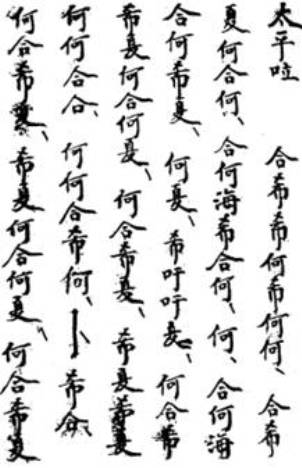 太平啦　合希希何希何何、合希
夏何合何、合何海希合何、何、合何海
合何希夏、何夏、希吁吁夏、何合希
希夏何合何夏、何合希夏、希夏希夏
何何合合、何何合希何、卜希合、
何合希夏、希夏何合何夏、何合希夏